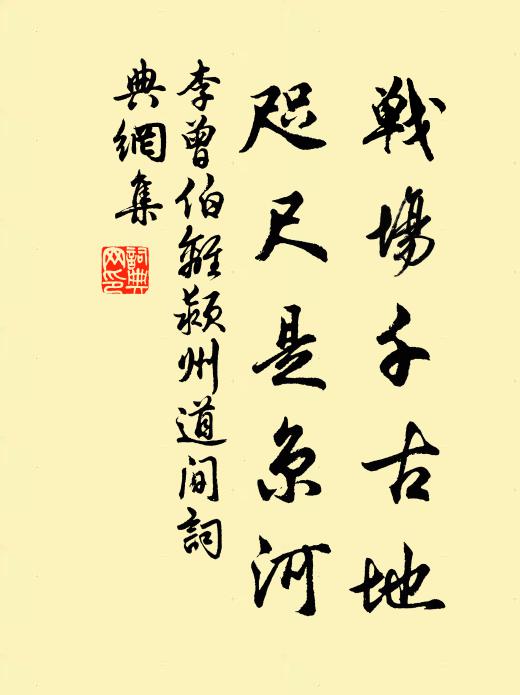 戰場千古地
咫尺是京河
李曾伯離潁州道間詞
典網集
詞典
网印